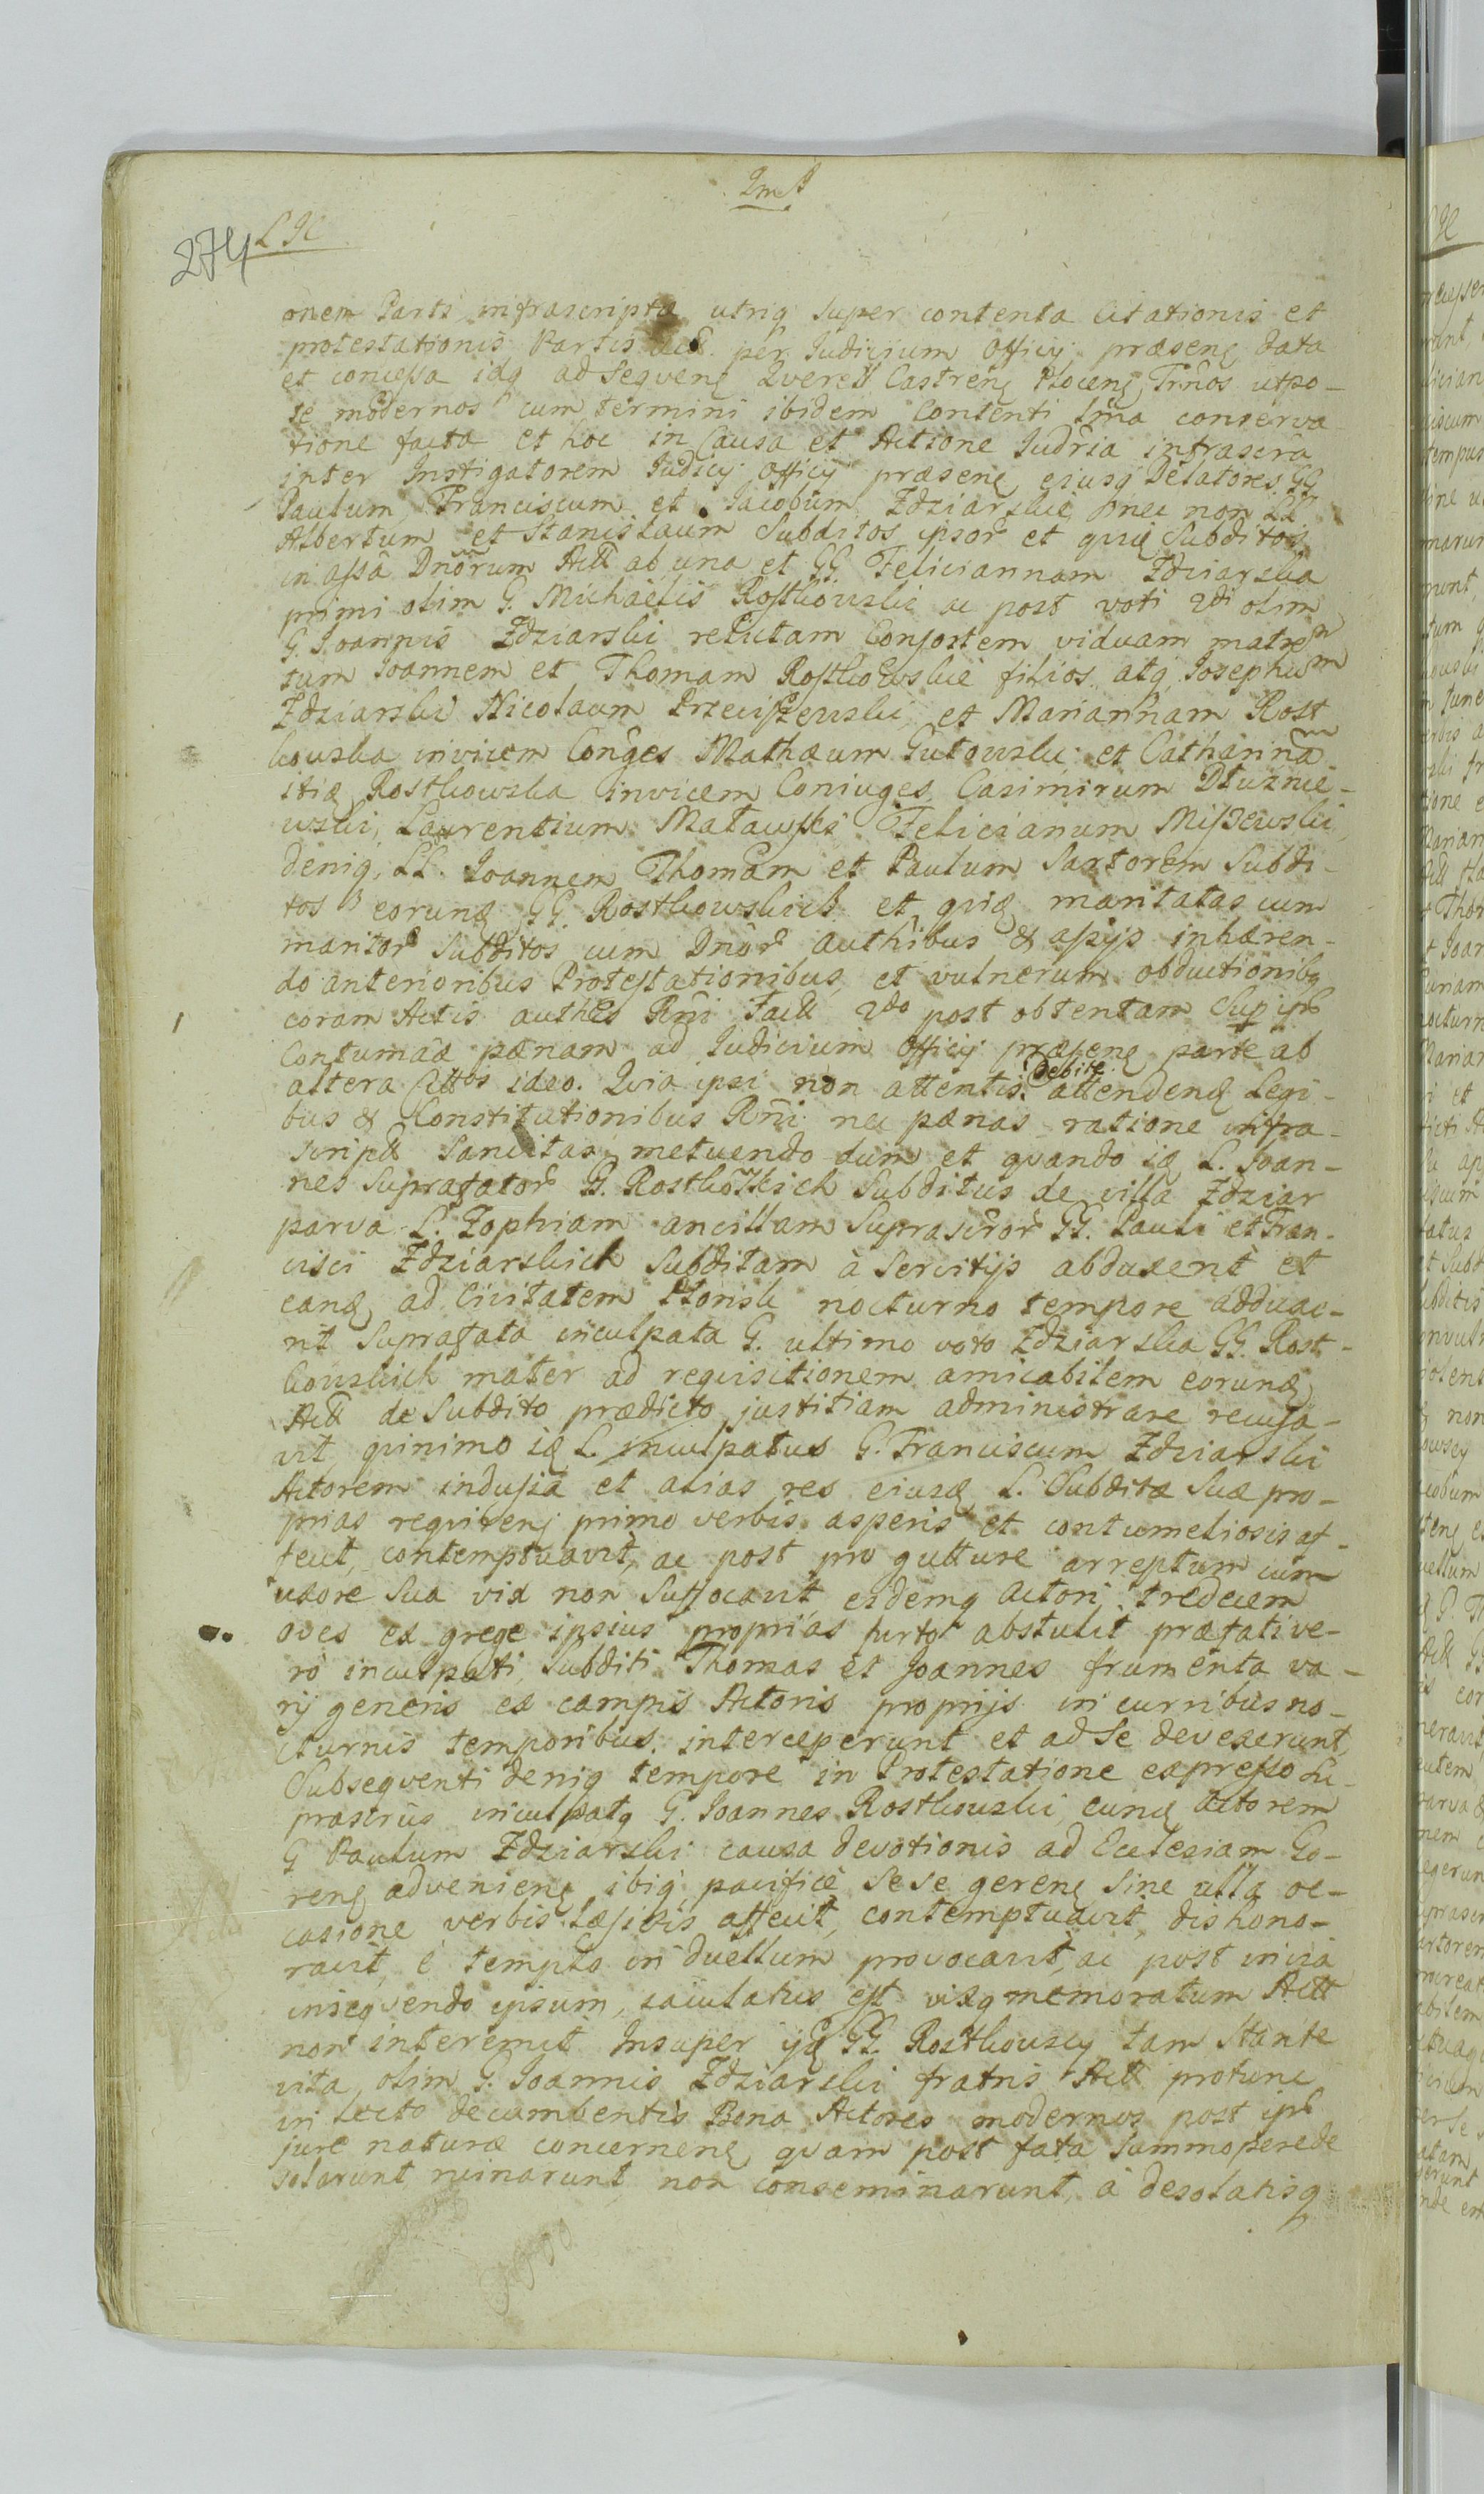 274 L JC
onem Parti infrascripta utriq super contenta Citationis et
protestationis Partis per Judicium Officij præsenς data
et concessa idq ad Sequenς Querell Castrenς Plocenς Trnos utpo-
te modernos cum termini ibidem Contenti conserva
tione facta et hoc in Causa et Actione Judria infrascra
inter Instigatorem Judicij Officij præsenς ejusq Delatores GG
Paulum Franciscum et Jacobum Zdziarskie nec non LL
Albertum et Stanislaum Subditos ipsor et Subditos
in assa Dnorum Actt ab una et GG Feliciannam Zdziarska
primi olim G. Michaelis Rostkowski ac post voti 2di olim
G. Joannis Zdziarski relictam Consortem viduam matrem
tum Joannem et Thomam Rostkowskie filios atq Josephum
Zdziarski Nicolaum Przeciszewski et Mariannam Rost
kowska invicem Conges Mathæum Gutowski et Catharinnam
Rostkowska invicem Coniuges Casimirum Dłuznie-
wski, Laurentium Felicianum Miszewski
deniq, LL. Joannem Thomam et Paulum Sartorem Subdi-
tos GG Rostkowskich et maritatas cum
maritor Subditos cum Dnor authibus & assijs inhæren-
do anterioribus Protestationibus et vulnerum obductionibq
coram Actis authes Rni Factt 2do post obtentam Sup ipς
Contumaæ pænam ad Judicium Officij præsenς parte ab
altera Cttos ideo. Quia ipsi non attentis debite attendenς Legi-
bus & Constitutionibus Rni nec pænas ratione infra-
scripς Sancitas metuendo dum et quando L. Joan-
nes Suprafator G. Rostkowskich Subditus de villa Zdziar
parva L. Zophiam ancillam Suprascror GG. Pauli et Fran-
cisci Zdziarskich Subditam à Servitijs abduxerit et
eanς ad Civitatem Plonsk nocturno tempore adduxe-
rit Suprafata inculpata G. ultimo voto Zdziarska GG. Rost-
kowskich mater ad requisitionem amicabilem
Actt de Subdito prædicto justitiam administrare recusa-
vit quinimo L. inculpatus G. Franciscum Zdziarski
Actorem indusia et alias res L. Subditæ Suæ pro-
prias requirenς primo verbis asperis et contumeliosis af-
fecit, contemptuavit, ac post pro gutture arreptum cum
uxore Sua vix non Suffocavit eidemq Actori tredecem
oves ex grege ipsius proprias furto abstulit præfati ve-
ro inculpati Subditi Thomas et Joannes frumenta va-
rij generis ex campis Actoris proprijs in curribus no-
cturnis temporibus interceperunt et ad Se devexerunt,
Subsequenti deniq tempore in Protestatione expresso Su-
prascrus inculpatq G. Joannes Rostkowski Actorem
G Paulum Zdziarski causa devotionis ad Ecclesiam Go-
renς advenienς ibiq pacifice Sese gerenς Sine ulla oc-
casione verbis læsivis affecit, contemptuavit, dishono-
ravit, è templo in duellum provocavit, ac post in via
insequendo ipsum, iaculatus est vixq memoratum Actt
non interemit Insuper GG. Rostkowscy tam Stante
vita olim G. Joannis Zdziarski fratris Actt protunc
in lecto decumbentis Bona Actores modernos post ipς
jure naturæ concernenς quam post fata Summopere de
solarunt ruinarunt non conseminarunt, à desolatisq